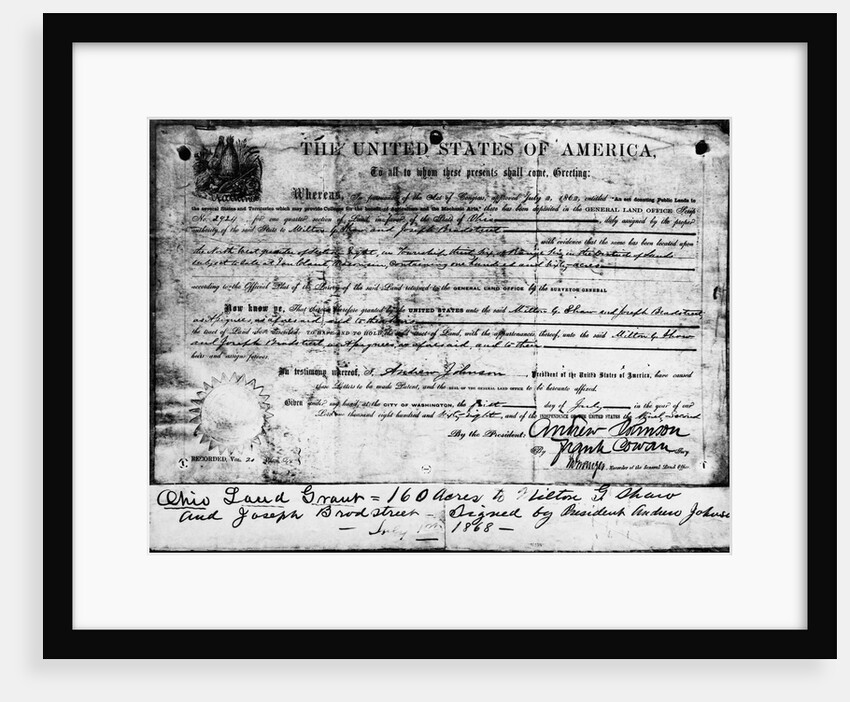 THE UNITED STATES OF AMERICA,
To all to whom these presents shall come, Greeting:
Whereas, In pursuance of the Act of Congress, approved July 2, 1862, entitled "An act donating Public Lands to
the several States and Territories which may provide Colleges for the benefit of Agriculture and the Mechanic Arts," there has been deposited in the GENERAL LAND OFFICE Scrip
No. 2924 for one quarter section of Land in favor of the State of Ohio, duly assigned by the proper
authority of the said State to Milton G. Shaw and Joseph Bradstreet
with evidence that the same has been located upon
the North West quarter of Section Eight, in Township in the District of Lands
subject to sale at Wisconsin, containing one hundred and sixty acres
according to the Official Plat of the Survey of the said Land returned to the GENERAL LAND OFFICE by the SURVEYOR GENERAL
Now know ye, That there is therefore granted by the UNITED STATES unto the said Milton G. Shaw and Joseph Bradstreet,
as assignees, as aforesaid, and to their heirs
the tract of Land above described; TO HAVE AND TO HOLD the said tract of Land, with the appurtenances thereof, unto the said Milton G. Shaw
and Joseph Bradstreet, as assignees, as aforesaid, and to their
heirs and assigns forever.
In testimony whereof, I, Andrew Johnson, President of the United States of America, have caused
these Letters to be made Patent, and the SEAL OF THE GENERAL LAND OFFICE to be hereunto affixed.
Given under my hand, at the CITY OF WASHINGTON, the first day of July, in the year of our
Lord one thousand eight hundred and sixty eight, and of the INDEPENDENCE OF THE UNITED STATES the ninety second
By the President: Andrew Johnson
By Frank Cowan, Sec'y
Recorder of the General Land Office
RECORDED, Vol.
Ohio Land Grant = 160 Acres to Milton G Shaw
and Joseph Brodstreet - Signed by President Andrew Johnso
- July 1868 -